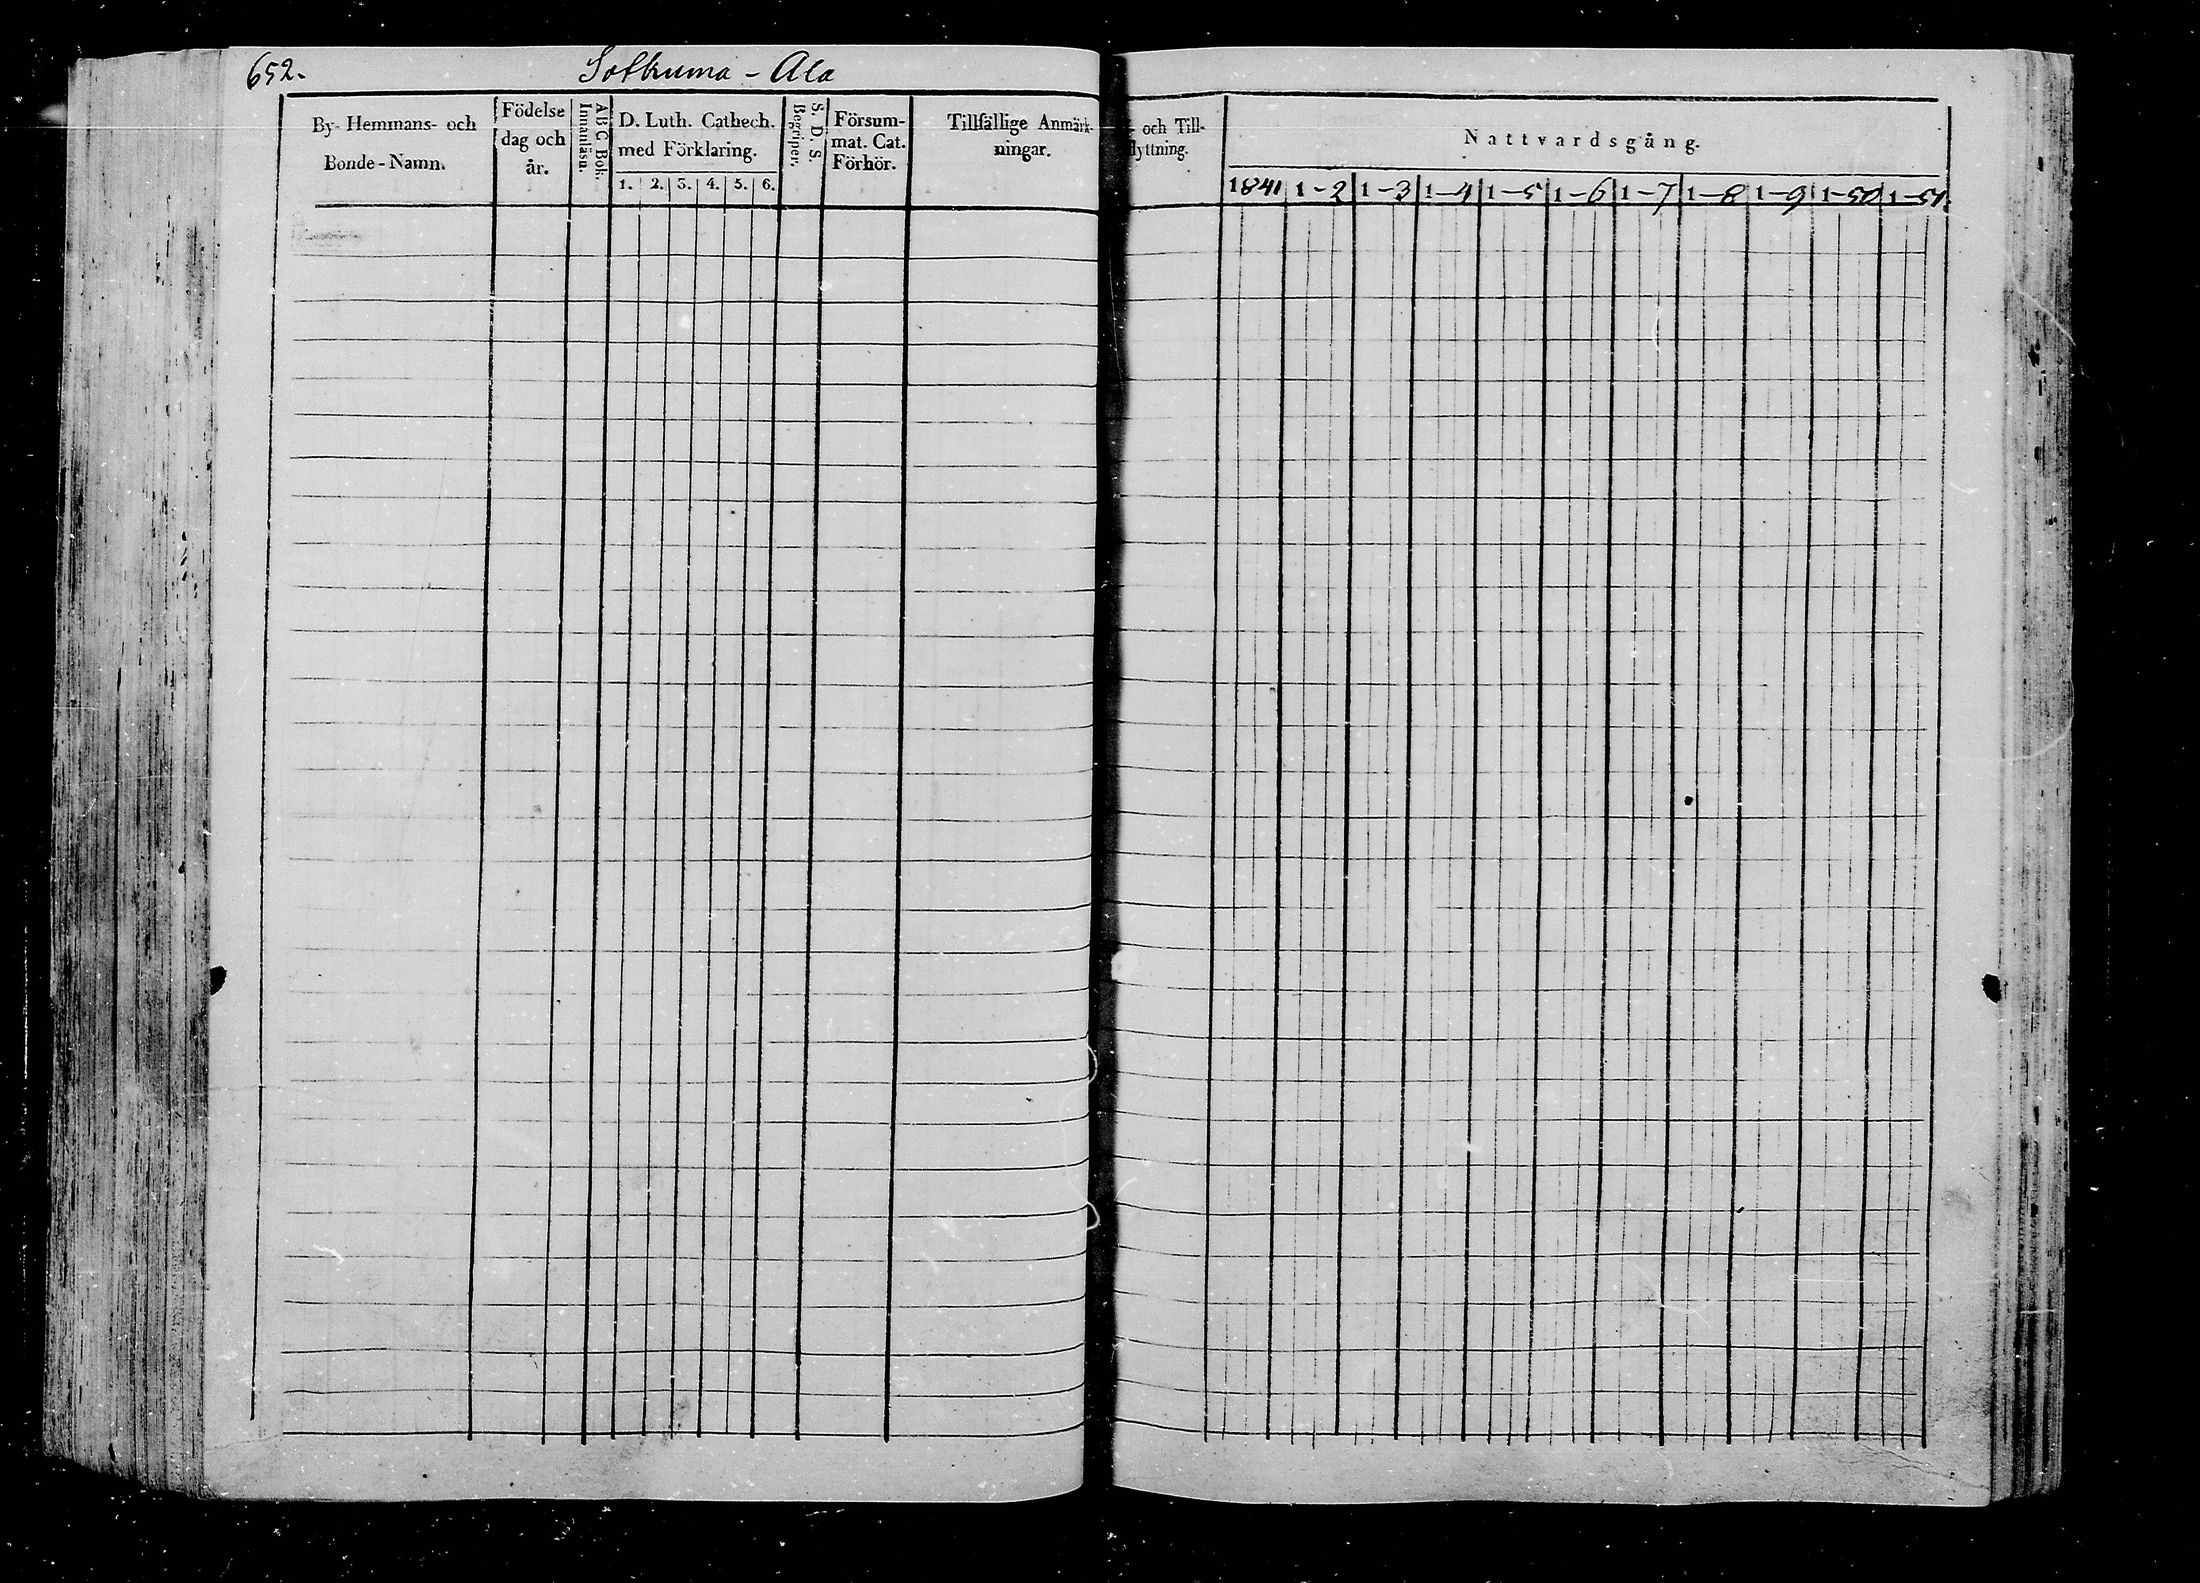 652.
Sotkuma - Ala
By- Hemmans- och
Bonde-Namn.
Födelse
dag och
år.
A B C Bok.
Innanläsn.
D. Luth. Cathech.
med Förklaring.
1. 2. 3. 4. 5. 6.
S. D. S.
Begriper.
Försum-
mat. Cat.
Förhör.
Tillfällige Anmärk-
ningar.
och Till-
flyttning.
Nattvardsgång.
1841 1-2 1-3 1-4 1-5 1-6 1-7 1-8 1-9 1-50 1-51.